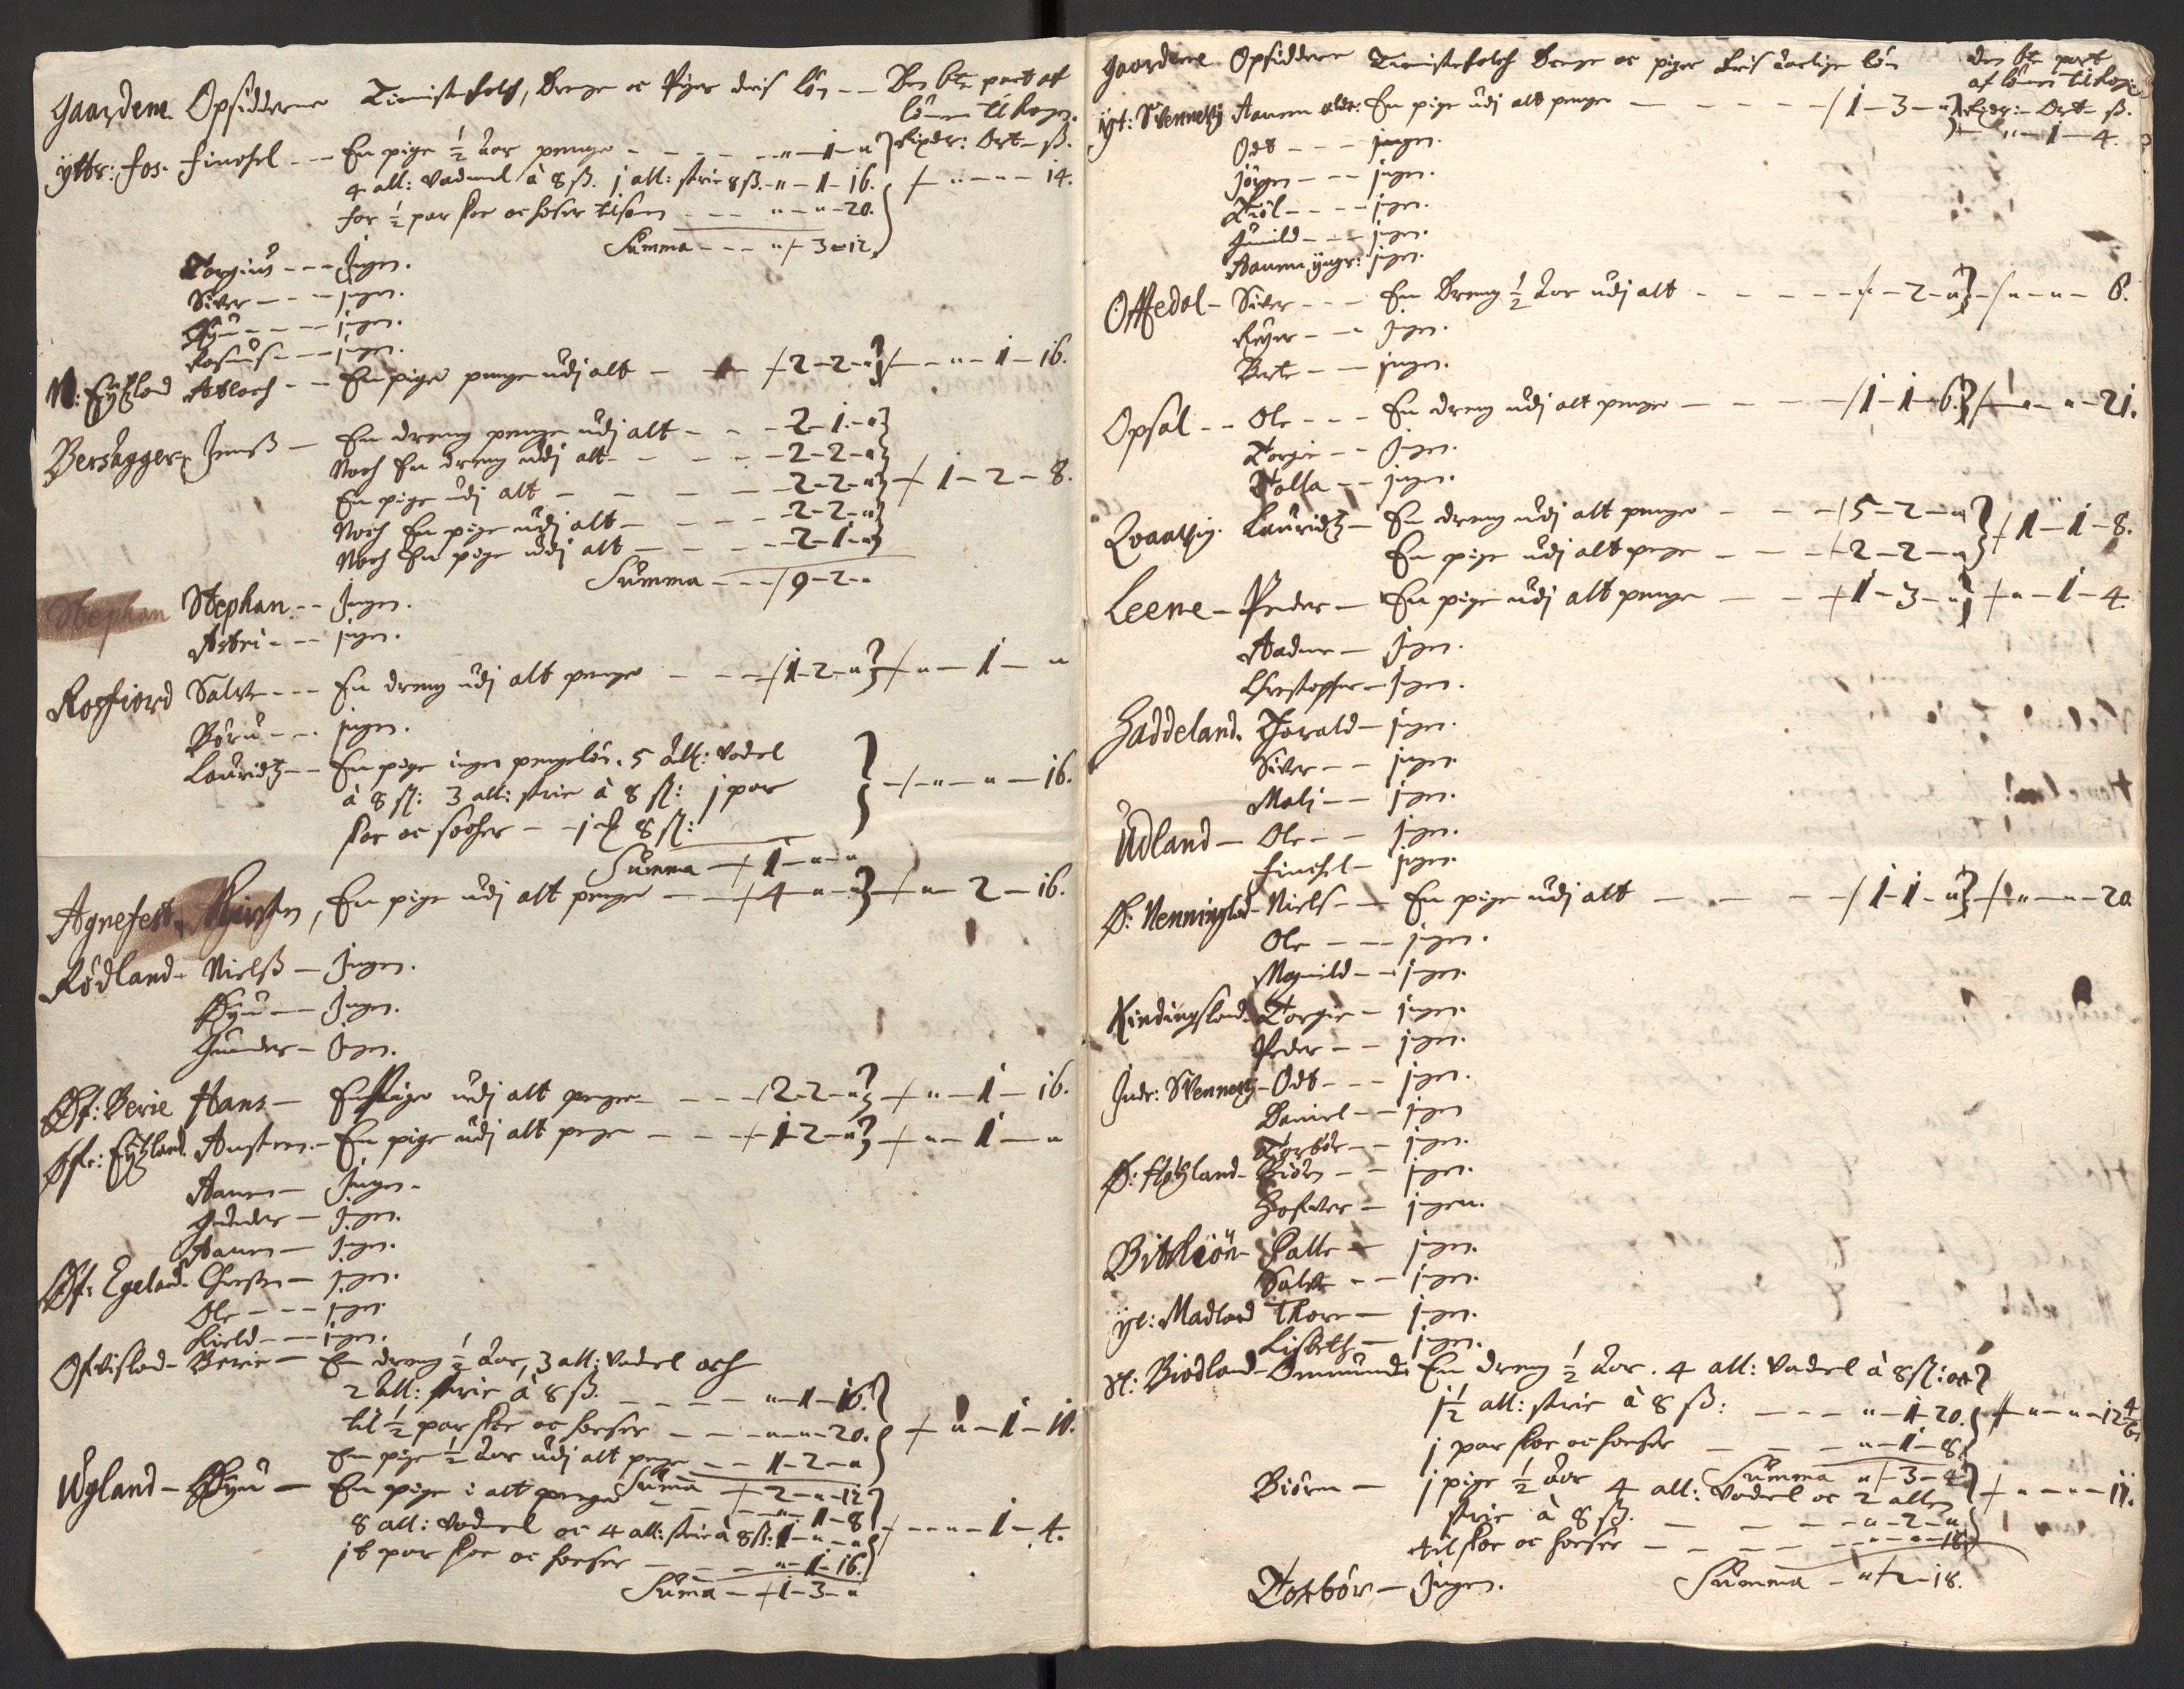 Gaardene Opsidderne Tienistefolch, Drenge oc Piger deris løn -- Den 6te part af
lönnen til Kongen.
Rixdr: Ort - ß.
Ytter: Fos. Finchel --- En pige ½ Aar penge - - - " - 1 - "
4 all: Vadmel à 8 ß. j all: strie 8 ß. - " - 1 - 16. / " - " - 14.
for ½ par skoe oc hoser tilsam --- " - " - 20.
Summa --- " / 3 - 12
Torgius --- Ingen.
Siver --- ingen.
Øyu --- ingen.
Rasmus --- ingen.
N: Eytland Atlach -- En pige penge udj alt - / 2 - 2 - " / - " - 1 - 16.
Bersagger. Jenß - En dreng penge udj alt - - - 2 - 1 - "
Noch En dreng udj alt - - - 2 - 2 - "
En pige udj alt - - - - 2 - 2 - " / 1 - 2 - 8.
Noch En pige udj alt - - - 2 - 2 - "
Noch En pige udj alt - - - 2 - 1 - "
Summa --- / 9 - 2 - "
Stephan Stephan -- Ingen.
Astri --- ingen.
Rosfiord Salve --- En dreng udj alt penge - - / 1 - 2 - " / " - 1 - "
Børu --- ingen.
Lauridtz -- En pige ingen pengeløn. 5 All: Vadel
à 8 ß: 3 all: strie à 8 ß: j par / - " - " - 16.
skoe oc hoeser - j # 8 ß:
Summa - / 1 - " - "
Agnefest. Kirsten, En pige udj alt penge - / 4 - " - " / " - 2 - 16.
Rødland - Nielß - Ingen.
Øyu - Ingen.
Gunder - Ingen.
Øf: Berie Hans - En Pige udj alt penge - - - / 2 - 2 - " / " - 1 - 16.
Øfr: Eytland. Austen - En pige udj alt penge - - / 1 - 2 - " / " - 1 - "
Aanen - Ingen.
Gunder - Ingen.
Aanen - Ingen.
Øf: Egeland. Christen - ingen.
Ole --- ingen.
Kield -- ingen.
Ofvisland - Berie - En dreng ½ Aar, 3 all: Vadel och
2 All: strie à 8 ß. - - - - " - 1 - 16.
til ½ par skoe oc hoeser - - - " - " - 20. / " - 1 - 11.
En pige ½ Aar udj alt penge - - 1 - 2 - "
Suma / 2 - " - 12
Ugland - Øyu - En pige i alt penge - - " - 1 - 8
8 all: Vadmel oc 4 all: strie à 8 ß: 1 - " - " / - " - 1 - 4.
j par skoe oc hoeser - - - " - 1 - 16.
Suma - / 1 - 3 - "
Gaardene Opsiddere Tienistefolch Drenge oc piger deris Aarlige løn den 6te part
af lönnen til Kongen
Rixdr: - Ort - ß.
Yt: Svennevig Aanen eldr: En pige udj alt penge - - - - / 1 - 3 - " / - " - 1 - 4.
Odt --- ingen.
Jörgen --- ingen.
Kiöl ---- ingen.
Gunild --- ingen.
Aanen yngr: ingen.
Offedal - Siver --- En Dreng ½ Aar udj alt - - - - / " - 2 - " / " - " - 8.
Reyer -- Ingen.
Berte -- ingen.
Opsal -- Ole --- En dreng udj alt penge - - - / 1 - 1 - 6 / " - " - 21.
Torgie -- Ingen.
Tolla -- ingen.
Qvaavig. Lauridtz - En dreng udj alt penge - - / 5 - 2 - " / 1 - 1 - 8.
En pige udj alt penge - - / 2 - 2 - "
Leene - Peder - En pige udj alt penge - - / 1 - 3 - " / " - 1 - 4.
Aadne - Ingen.
Christopher - Ingen.
Haddeland. Thorald - ingen.
Siver -- ingen.
Malj -- ingen.
Udland - Ole -- ingen.
Finchel - ingen.
Ø: Nenningsland - Niels - En pige udj alt - - - / 1 - 1 - " / " - " - 20
Ole --- ingen.
Magnild - ingen.
Kindingsland. Torgie - ingen.
Peder -- ingen.
Indr: Svennevig - Odt --- ingen.
Daniel - ingen
Torbör - ingen.
Ø: Høyland - Biörn -- ingen.
Hofver - ingen.
Bitkiön - Kalle - ingen.
Salve -- ingen.
Yt: Madland Thore - ingen.
Lisbeth - ingen.
Yt: Biödland - Ommund: En dreng ½ Aar. 4 all: Vadel à 8 ß: oc
j½ all: strie à 8 ß: - - - " - 1 - 20. / " - " - 12 4/6
j par skoe oc hoeser - - - " - 1 - 8
Summa " / 3 - 4
Biörn - j pige ½ Aar 4 all: Vadel oc 2 allen / " - " - 11.
strie à 8 ß. - - - - " - 2 - "
til skoe oc hoeser - - - - " - " - 18
Summa - " / 2 - 18.
Torbör - Ingen.